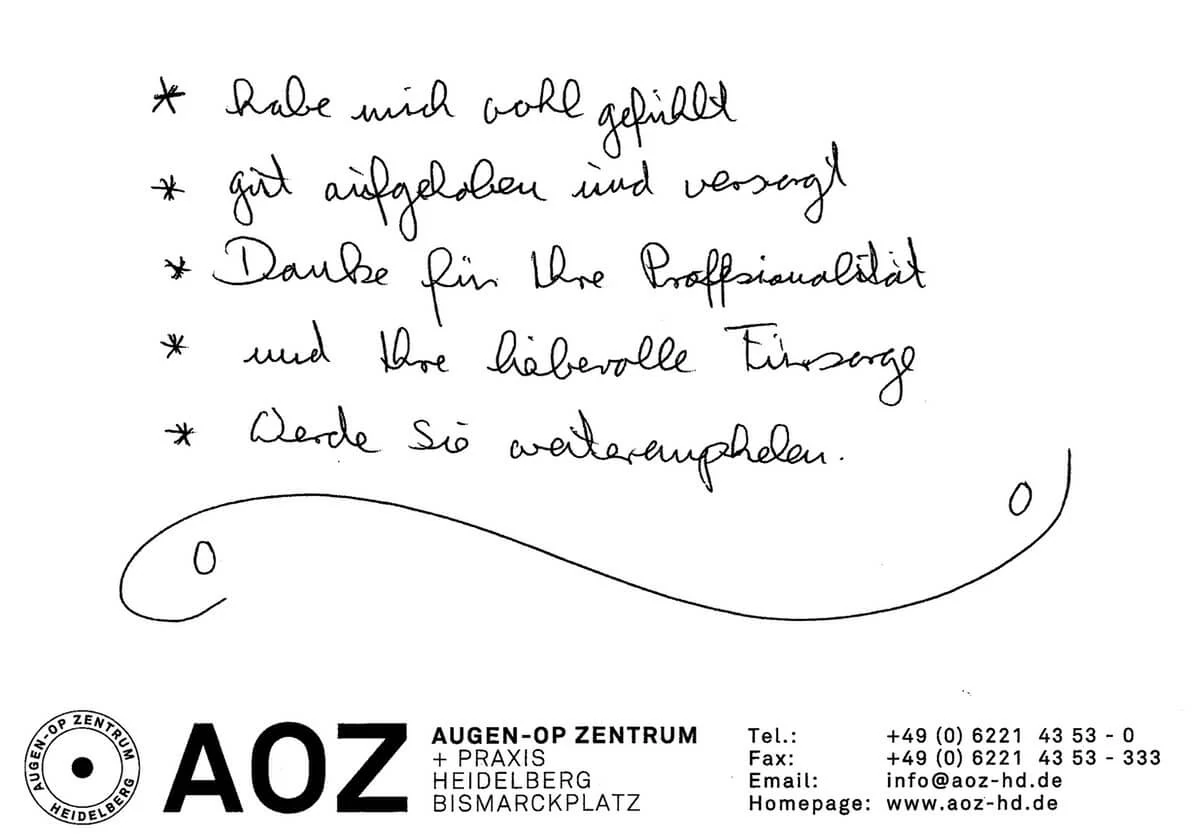 * habe mich wohl gefühlt
* gut aufgehoben und versorgt
* Danke für Ihre Proffsionalität
* und Ihre liebevolle Fürsorge
* Werde Sie weiterempfhelen.
AUGEN-OP ZENTRUM
HEIDELBERG
AOZ
AUGEN-OP ZENTRUM
+ PRAXIS
HEIDELBERG
BISMARCKPLATZ
Tel.: +49 (0) 6221 43 53 - 0
Fax: +49 (0) 6221 43 53 - 333
Email: info@aoz-hd.de
Homepage: www.aoz-hd.de